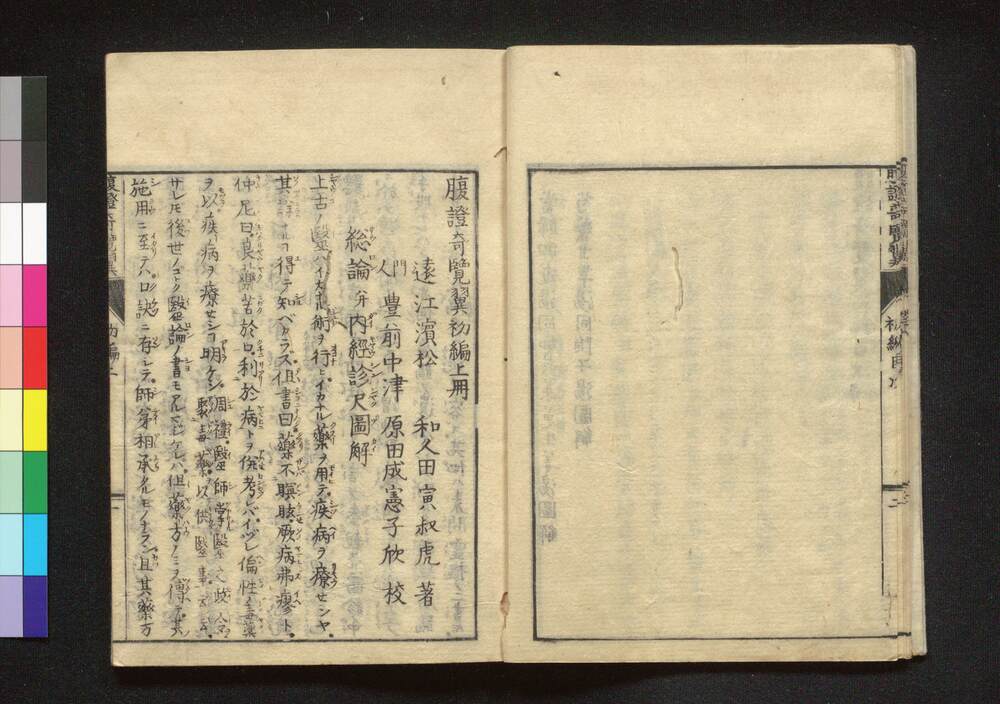 腹證奇覽翼初編上冊
遠江濱松 和久田寅叔虎 著
門人 豊前中津 原田成憲子欣 校
総論 并 内經診尺圖解
上古ノ醫ハイカナル術ヲ行ヒイカナル藥ヲ用テ疾病ヲ療セシヤ
其 得テ知ベカラズ但書曰藥不瞑眩厥病弗瘳ト
仲尼曰良藥苦於口利於病トヲ併考レバイヅレ偏性ノ毒藥
ヲ以疾病ヲ療セシコ明ケシ 周禮醫師掌醫之政令聚毒藥以供醫事
サレモ後世ノゴトク醫論ノ書モアルマジケレハ但藥方ノミヲ傳テ其
施用ニ至テハ口訣ニ存シテ師弟相承クルモノナラン且其藥方